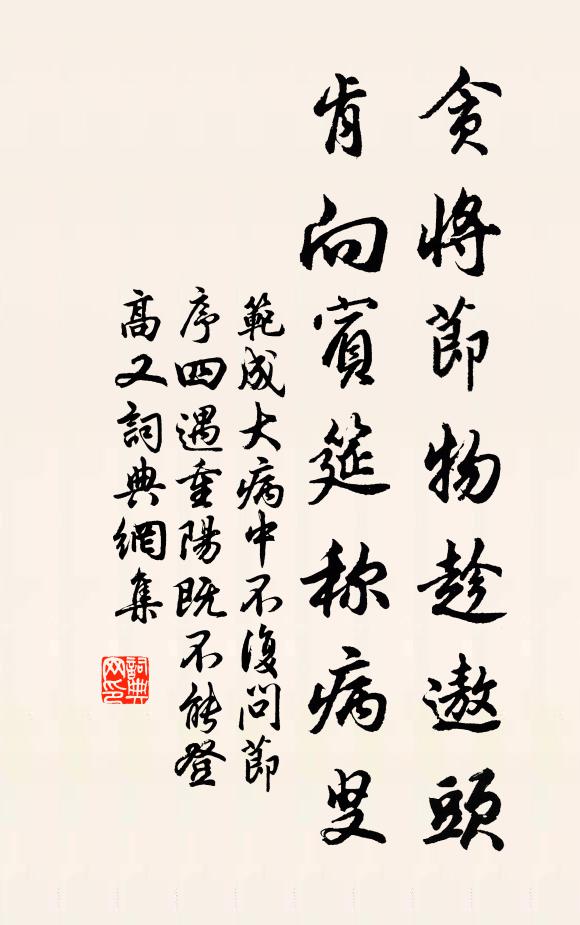 貪將節物趁遨頭
肯向賓筵称病叟
範成大病中不復問節
序四遇重陽既不能登
高又詞典網集
詞典网印